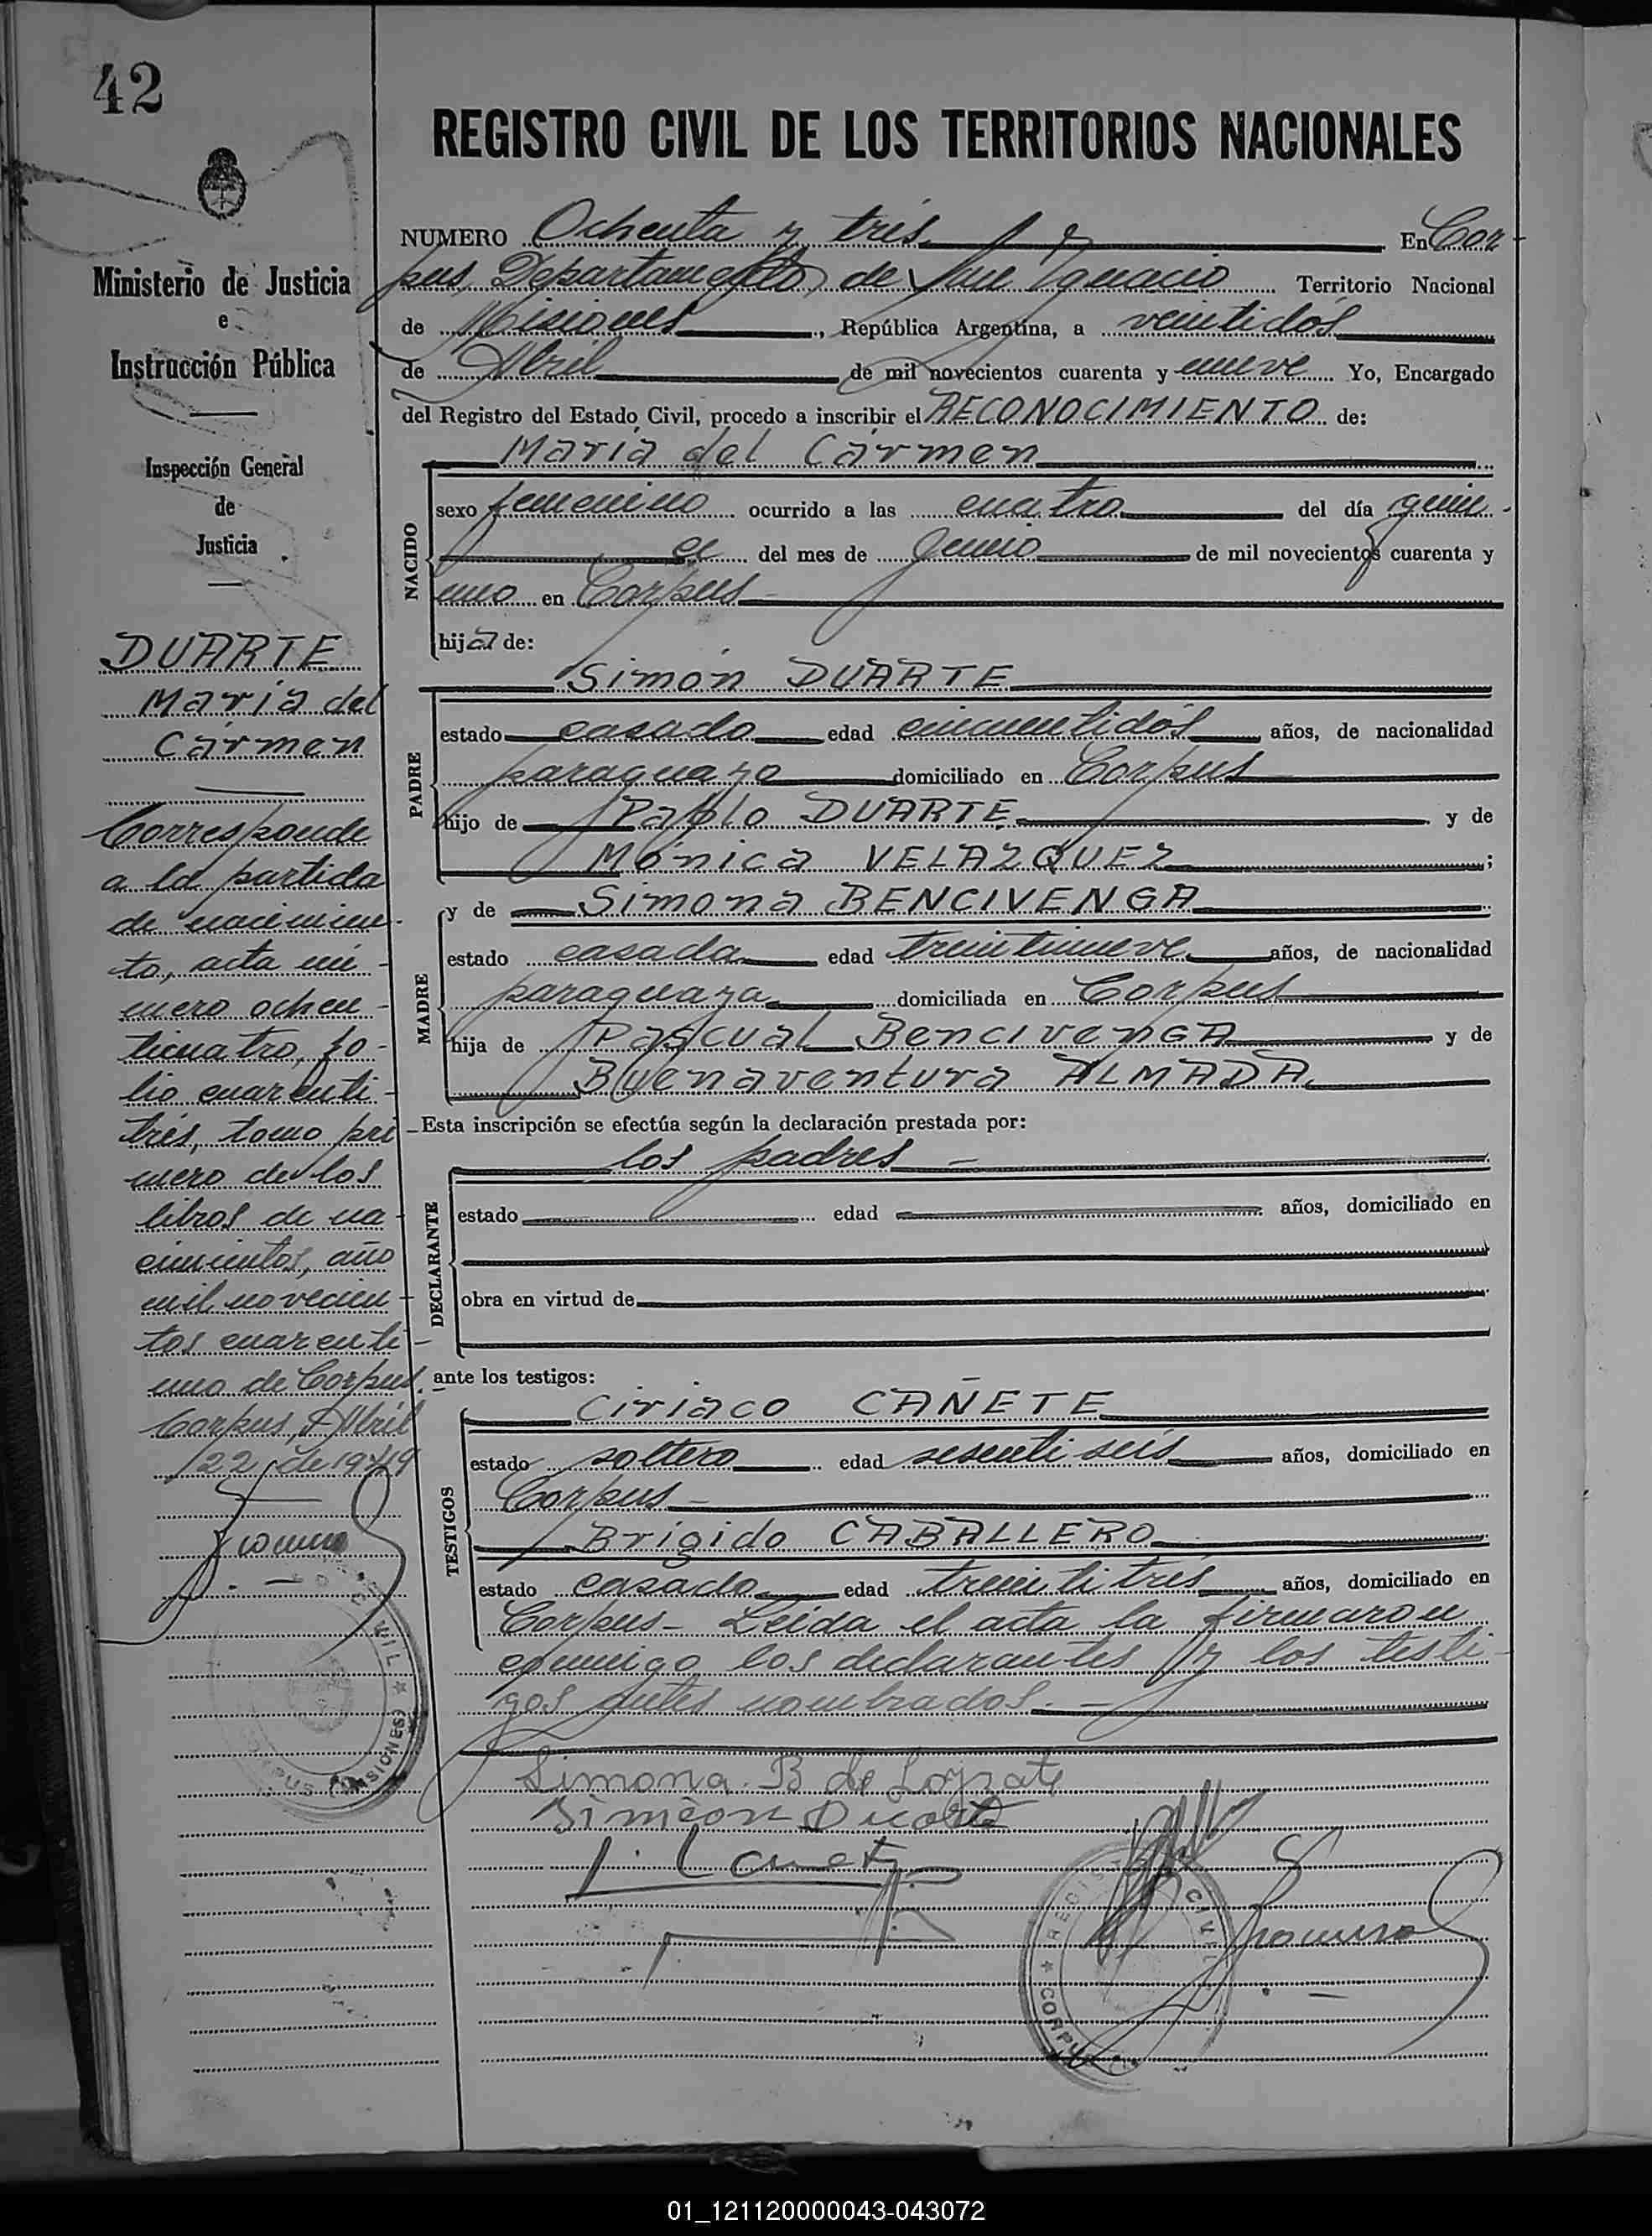 42
REGISTRO CIVIL DE LOS TERRITORIOS NACIONALES
NUMERO Ochenta y trés En Cor-
pus, Departamento de San Ignacio Territorio Nacional
de Misiones, República Argentina, a veintidós
de Abril de mil novecientos cuarenta y nueve Yo, Encargado
del Registro del Estado Civil, procedo a inscribir el RECONOCIMIENTO de:
María del Cármen
NACIDO
sexo femenino ocurrido a las cuatro del día quin-
ce del mes de Junio de mil novecientos cuarenta y
uno en Corpus
hija de:
Simón DUARTE
PADRE
estado casado edad cincuentidós años, de nacionalidad
paraguayo domiciliado en Corpus
hijo de Pablo DUARTE y de
Mónica VELAZQUEZ;
MADRE
y de Simona BENCIVENGA
estado casada edad treintinueve años, de nacionalidad
paraguaya domiciliada en Corpus
hija de Pascual BencivenGA y de
Buenaventura ALMADA
Esta inscripción se efectúa según la declaración prestada por:
los padres
DECLARANTE
estado edad años, domiciliado en
obra en virtud de
ante los testigos:
Ciriaco CAÑETE
TESTIGOS
estado soltero edad sesenti seis años, domiciliado en
Corpus
Brígido CABALLERO
estado casado edad treintitrés años, domiciliado en
Corpus- Leida el acta la firmaron
conmigo los declarantes y los testi-
gos antes nombrados.-
Simona B de
Simeón Duarte
REGISTRO CIVIL
CORPUS
Ministerio de Justicia
e
Instrucción Pública
Inspección General
de
Justicia
DUARTE
María del
Cármen
Corresponde
a la partida
de nacimien-
to, acta nú-
mero ochen-
ticuatro, fo-
lio cuarenti-
trés, tomo pri-
mero de los
libros de na-
cimientos, año
mil novecien-
tos cuarenti-
uno de Corpus.
Corpus, Abril
22 de 1949
CIVIL
CORPUS (MISIONES)
01_121120000043-043072